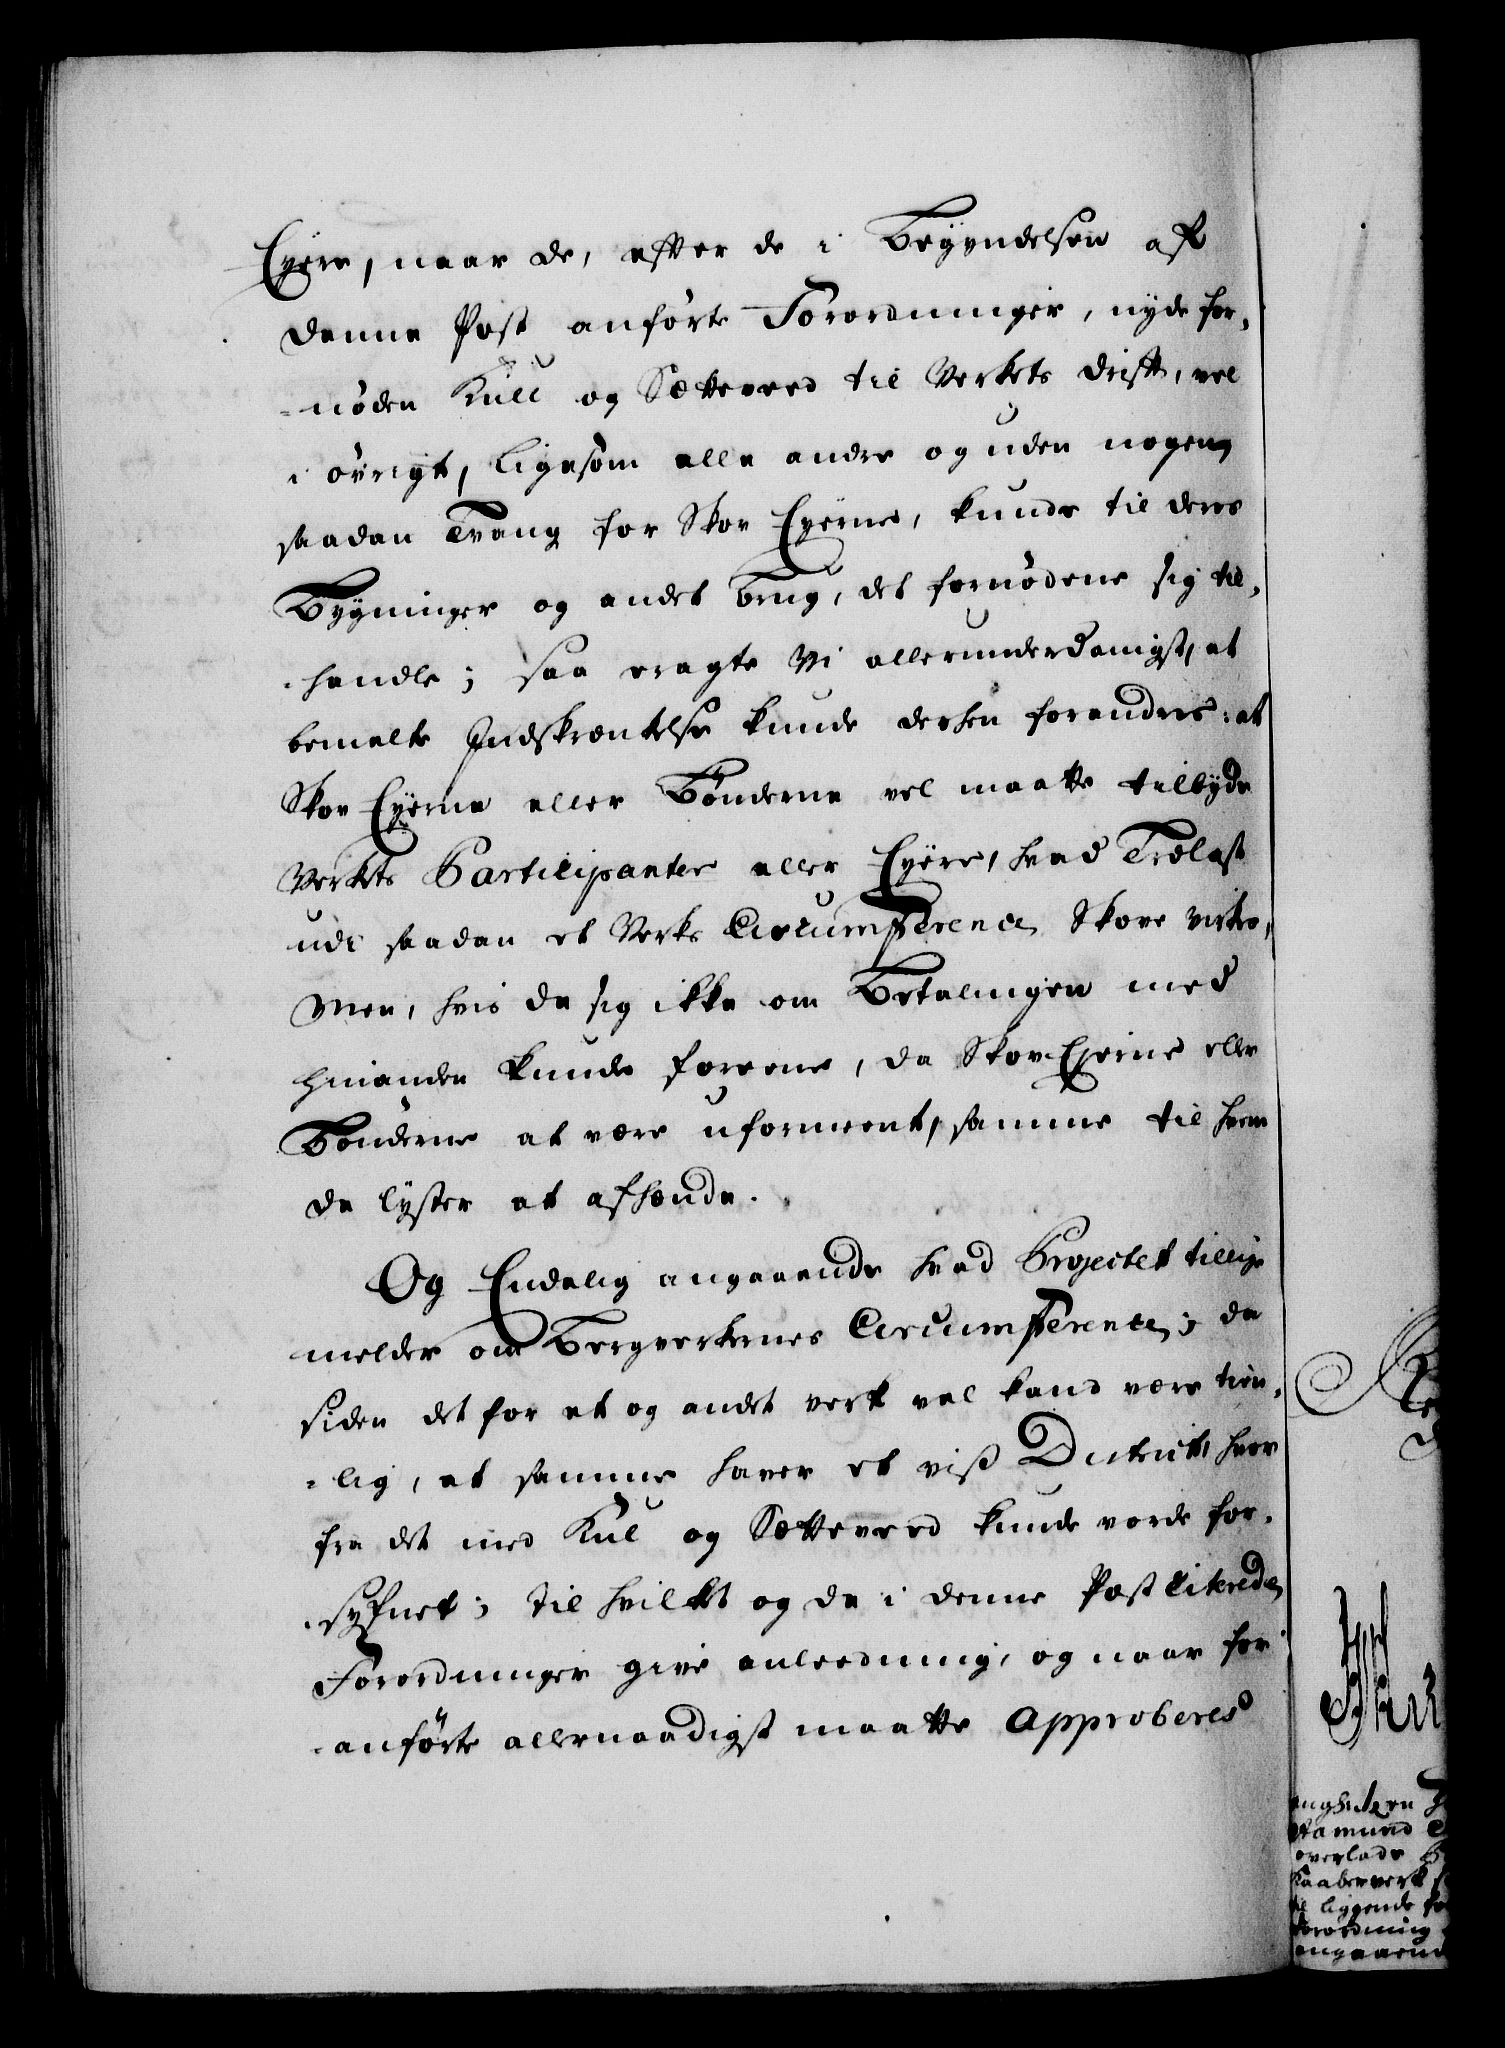 Eyere, naar de, efter de i Begyndelsen af
denne Post anførte Forordninger, nyde for¬
nøden Kull og Sætteveed til Verkets drift, vel
i øvrigt, ligesom alle andre og uden nogen
saadan Tvang for Skov Eyerne, kunde til deres
Bygninger og andet brug, det fornødene sig til¬
handle; saa eragte Vi allerunderdanigst, at
bemelte Indskrænkelse kunde derhen forandres: at
Skov Eyerne eller Bønderne vel maatte tilbyde
Verkets Participanter eller Eyere, hvad Trælast
udi saadan et Verks Circumference Skove virkes,
Men, hvis de sig ikke om Betalingen med
hinanden kunde foreene, da Skov-Eyerne eller
Bønderne at være uformeent, samme til hvem
de lyster at afhænde.
Og Endelig angaaende hvad Projectet tillige
melder om Bergverkernes Circumference; da
siden det for et og andet verk vel kand være tien¬
lig, at samme haver et viss District, hvor
fra det med Kul og Sætteveed kunde vorde for¬
syfnet; til hvilket og de i denne Post Citerede
Forordninger give anleedning, og naar for
anførte allernaadigst maatte Approberes
overlade
Kaaberverk
til liggende for
forordning
angaaend